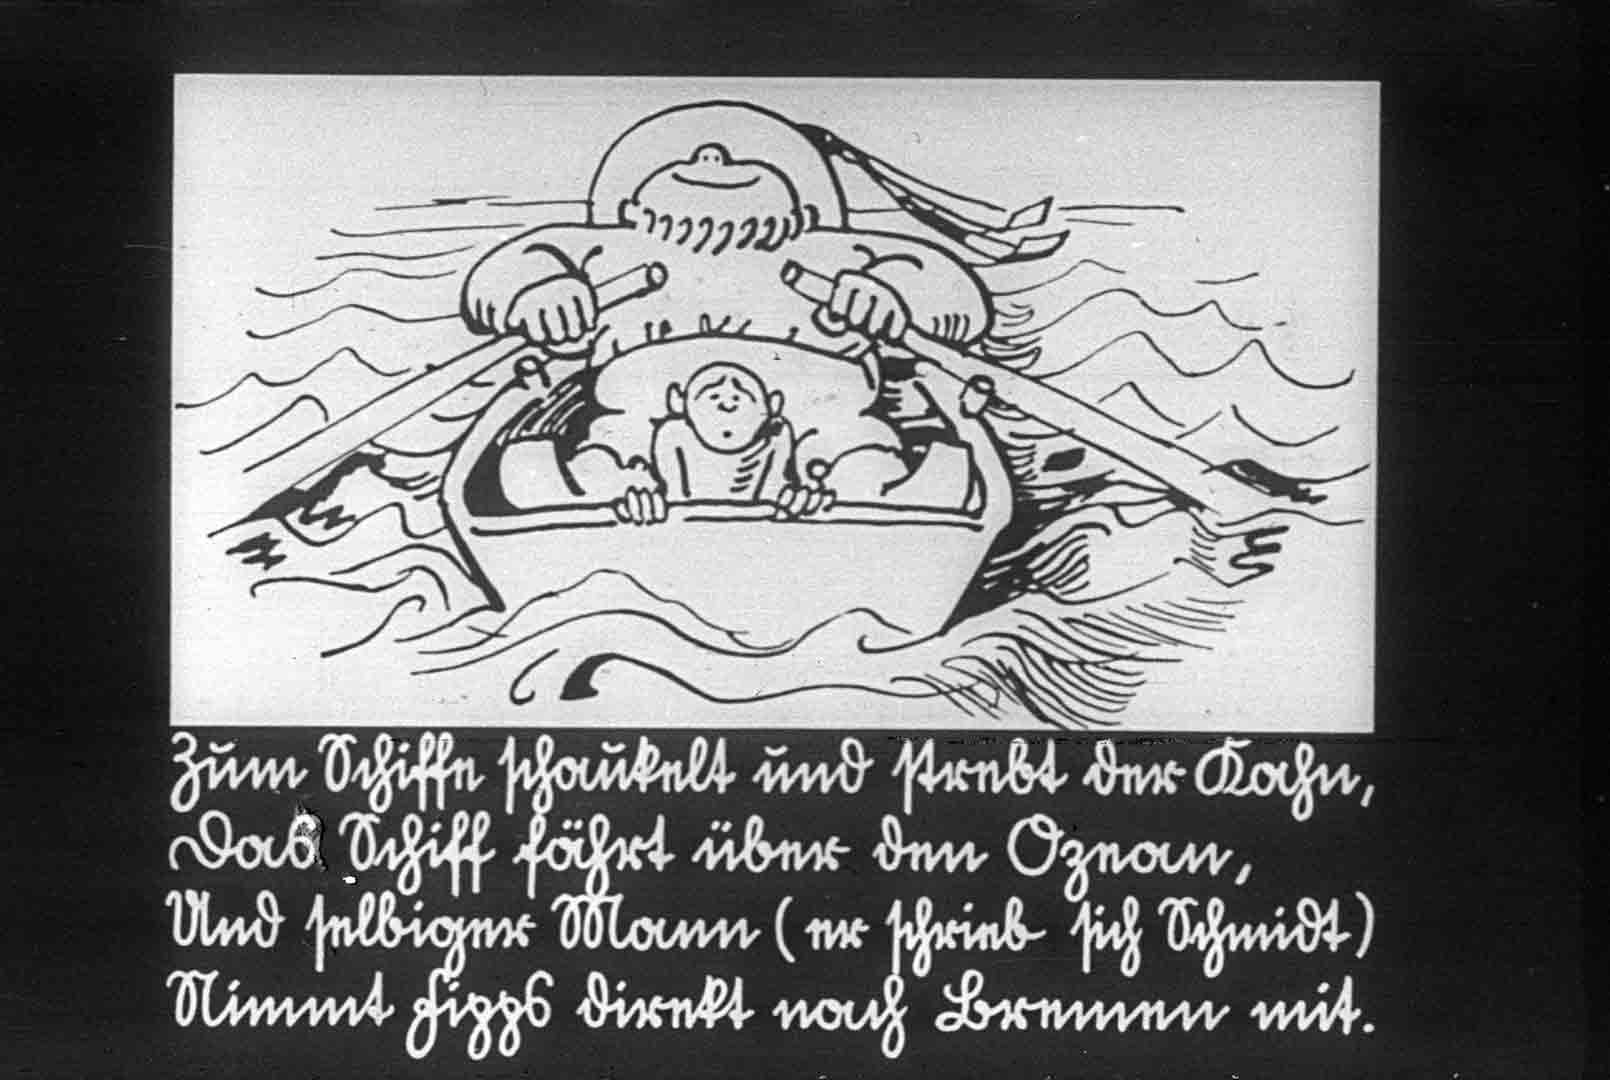 Zum Schiffe schaukelt und strebt der Kahn,
Das Schiff fährt über den Ozean,
Und selbiger Mann (er schrieb sich Schmidt)
Nimmt Fipps direkt nach Bremen mit.